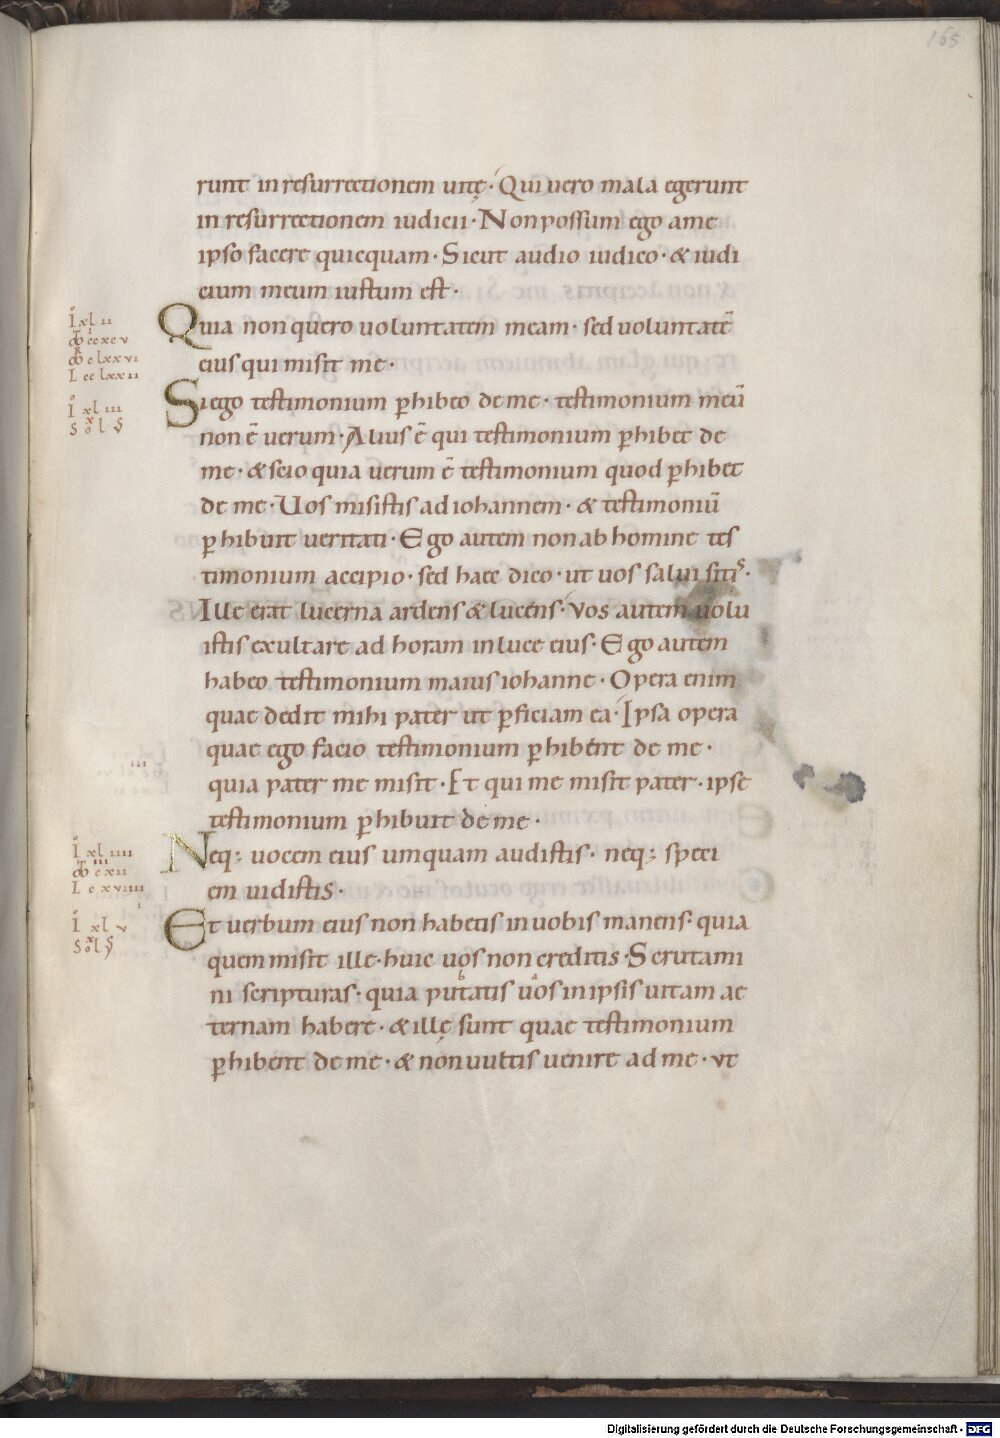 165
runt in resurrectionem uitę · Qui uero mala egerunt
in resurrectionem iudicii · Non possum ego a me
ipso facere quicquam · Sicut audio iudico · & iudi
cium meum iustum est ·
Quia non quero uoluntatem meam · sed uoluntatē
eius qui misit me ·
Si ego testimonium ꝑhibeo de me · testimonium meū
non ē uerum · Alius ē qui testimonium ꝑhibet de
me · & scio quia uerum ē testimonium quod ꝑhibet
de me · Uos misistis ad iohannem · & testimoniū
ꝑhibuit ueritati · Ego autem non ab homine tes
timonium accipio · sed haec dico · ut uos salui sitis ·
Ille erat lucerna ardens & lucens · Vos autem uolu
istis exultare ad horam in luce eius · Ego autem
habeo testimonium maius iohanne · Opera enim
quae dedit mihi pater ut ꝑficiam ea · Ipsa opera
quae ego facio testimonium ꝑhibent de me ·
quia pater me misit · Et qui me misit pater · ipse
testimonium ꝑhibuit de me ·
Neq; uocem eius umquam audistis · neq; speci
em uidistis ·
Et uerbum eius non habetis in uobis manens · quia
quem misit ille · huic uos non creditis · Scrutami
ni scripturas · quia putatis uos in ipsis uitam ae
ternam habere · & illę sunt quae testimonium
ꝑhibent de me · & non uultis uenire ad me · vt
I xl ii
cccxcv
clxxvi
L cclxxii
I xl iii
sol
I xl iiii
cxii
L cxviiii
I xl v
sol
Digitalisierung gefördert durch die Deutsche Forschungsgemeinschaft - DFG